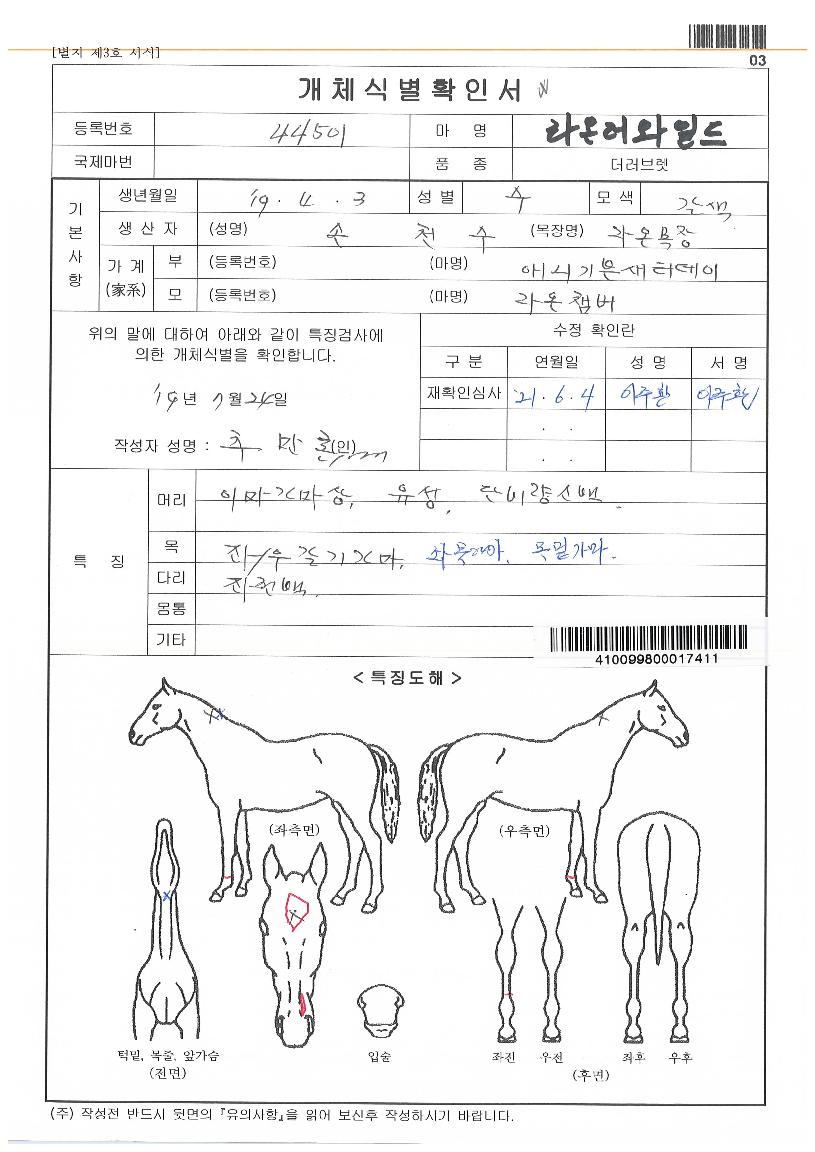 [별지 제3호 서식]
03
개체식별확인서
등록번호 44501 마 명 라온어와일드
국제마번 품 종 더러브렛
기본사항
생년월일 '19 . 4 . 3 성 별 수 모 색 갈색
생 산 자 (성명) 손 천 수 (목장명) 라온목장
가 계 (家系) 부 (등록번호) (마명) 애니기븐새터데이
모 (등록번호) (마명) 라온챔버
위의 말에 대하여 아래와 같이 특징검사에
의한 개체식별을 확인합니다.
'19년 7월 24일
작성자 성명 : 추 만 훈 (인)
수정 확인란
구 분 연월일 성 명 서 명
재확인심사 '21 . 6 . 4 이주환 이주환
. .
. .
특 징
머리 이마가마상, 유성, 단비량소백.
목 좌/우 갈기가마, 좌목가마, 목밑가마.
다리 좌전백.
몽통
기타
410099800017411
< 특징도해 >
(좌측면) (우측면)
턱밑, 목줄, 앞가슴 입술 좌전 우전 좌후 우후
(전면) (후면)
(주) 작성전 반드시 뒷면의 『유의사항』을 읽어 보신후 작성하시기 바랍니다.